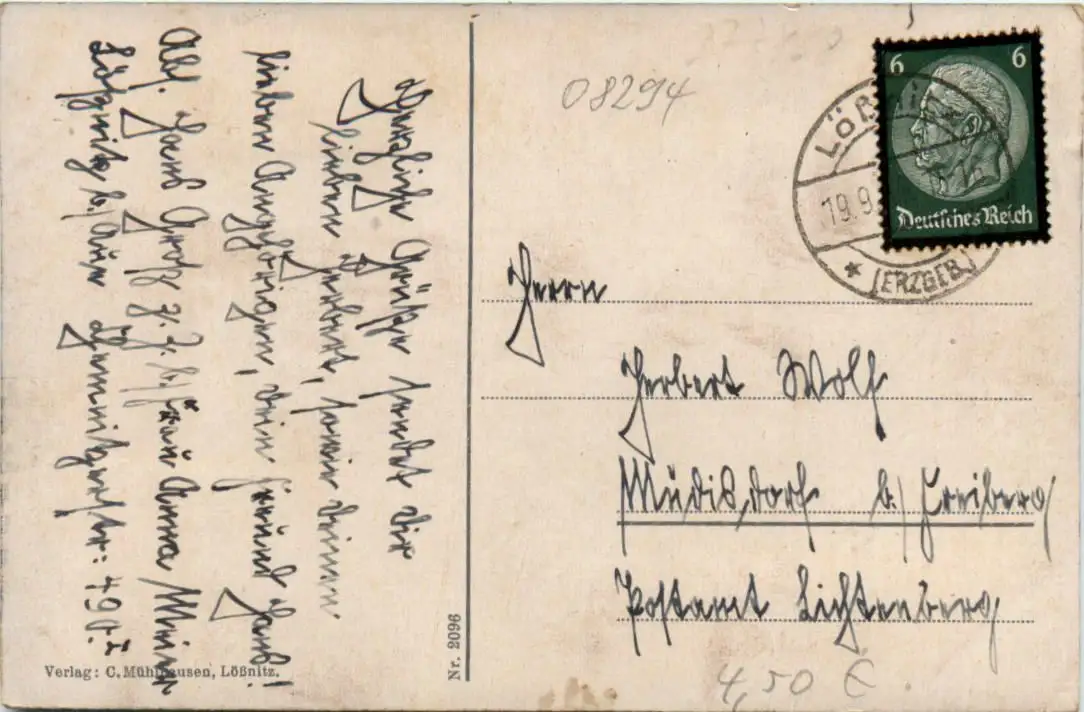 Herzliche Grüße sendet Dir
lieber Herbert, sowie Deinen
lieben Angehörigen, Dein Freund Hans!
Abs. Hans Groß z. Z. b/ Frau Anna
Lößnitz b/ Aue Chemnitzerstr: 490. I
08294
6 6
Deutsches Reich
LÖßNITZ
19.9.
* (ERZGEB.)
Herrn
Herbert Wolf
Müdisdorf b/ Freiberg
Postamt Lichtenberg
4,50 €
Nr. 2096
Verlag: C. Mühlhausen, Lößnitz.